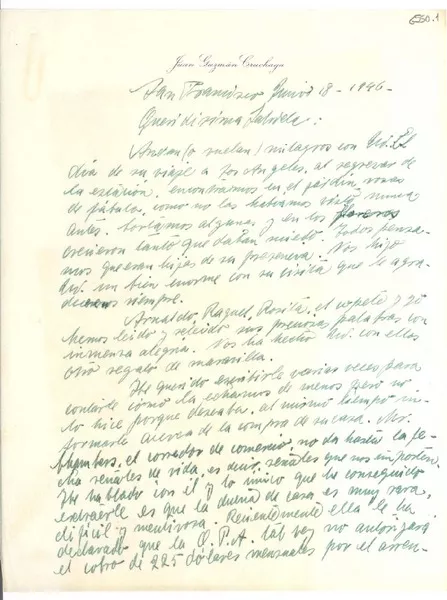 6560.1
Juan Guzmán Cruchaga
San Francisco Junio 18 - 1946 -
Queridísima Gabriela:
Andan (o vuelan) milagros con Ud. El
día de su viaje a Los Angeles, al regresar de
la estación, encontramos en el jardín rosas
de fábula, como no las habíamos visto nunca
antes. Cortamos algunas y en los floreros
crecieron tanto que daban miedo. Todos pensa-
mos que eran hijas de su presencia. Nos hizo
Ud. un bien enorme con su visita que le agra-
decemos siempre.
Arnaldo, Raquel, Rosita, el y yo
hemos leído y releído sus preciosas palabras con
inmensa alegría. Nos ha hecho Ud. con ellas
otro regalo de maravilla.
He querido escribirle varias veces para
contarle cómo la echamos de menos pero no
lo hice porque deseaba, al mismo tiempo in-
formarle acerca de la compra de su casa. Mr.
Chambers, el corredor de comercio, no da hasta la fe-
cha señales de vida, es decir, señales que nos importen.
He hablado con él y lo único que he conseguido
extraerle es que la dueña de casa es muy rara,
difícil y mentirosa. Recientemente ella le ha
declarado que la O.P.A. tal vez no autorizara
el cobro de 225 dólares mensuales por el arren-